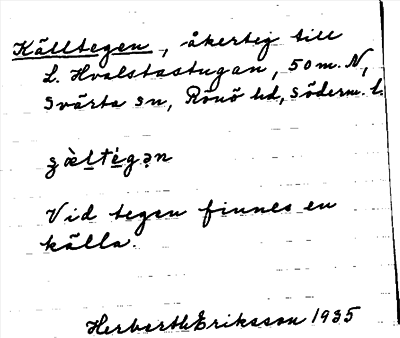 Källtegen, åkertej till
L. Hvalstastugan, 50 m. N,
Svärta sn, Rönö hd, Söderm. l.
Vid tegen finnes en
källa.
Herbert Eriksson 1935